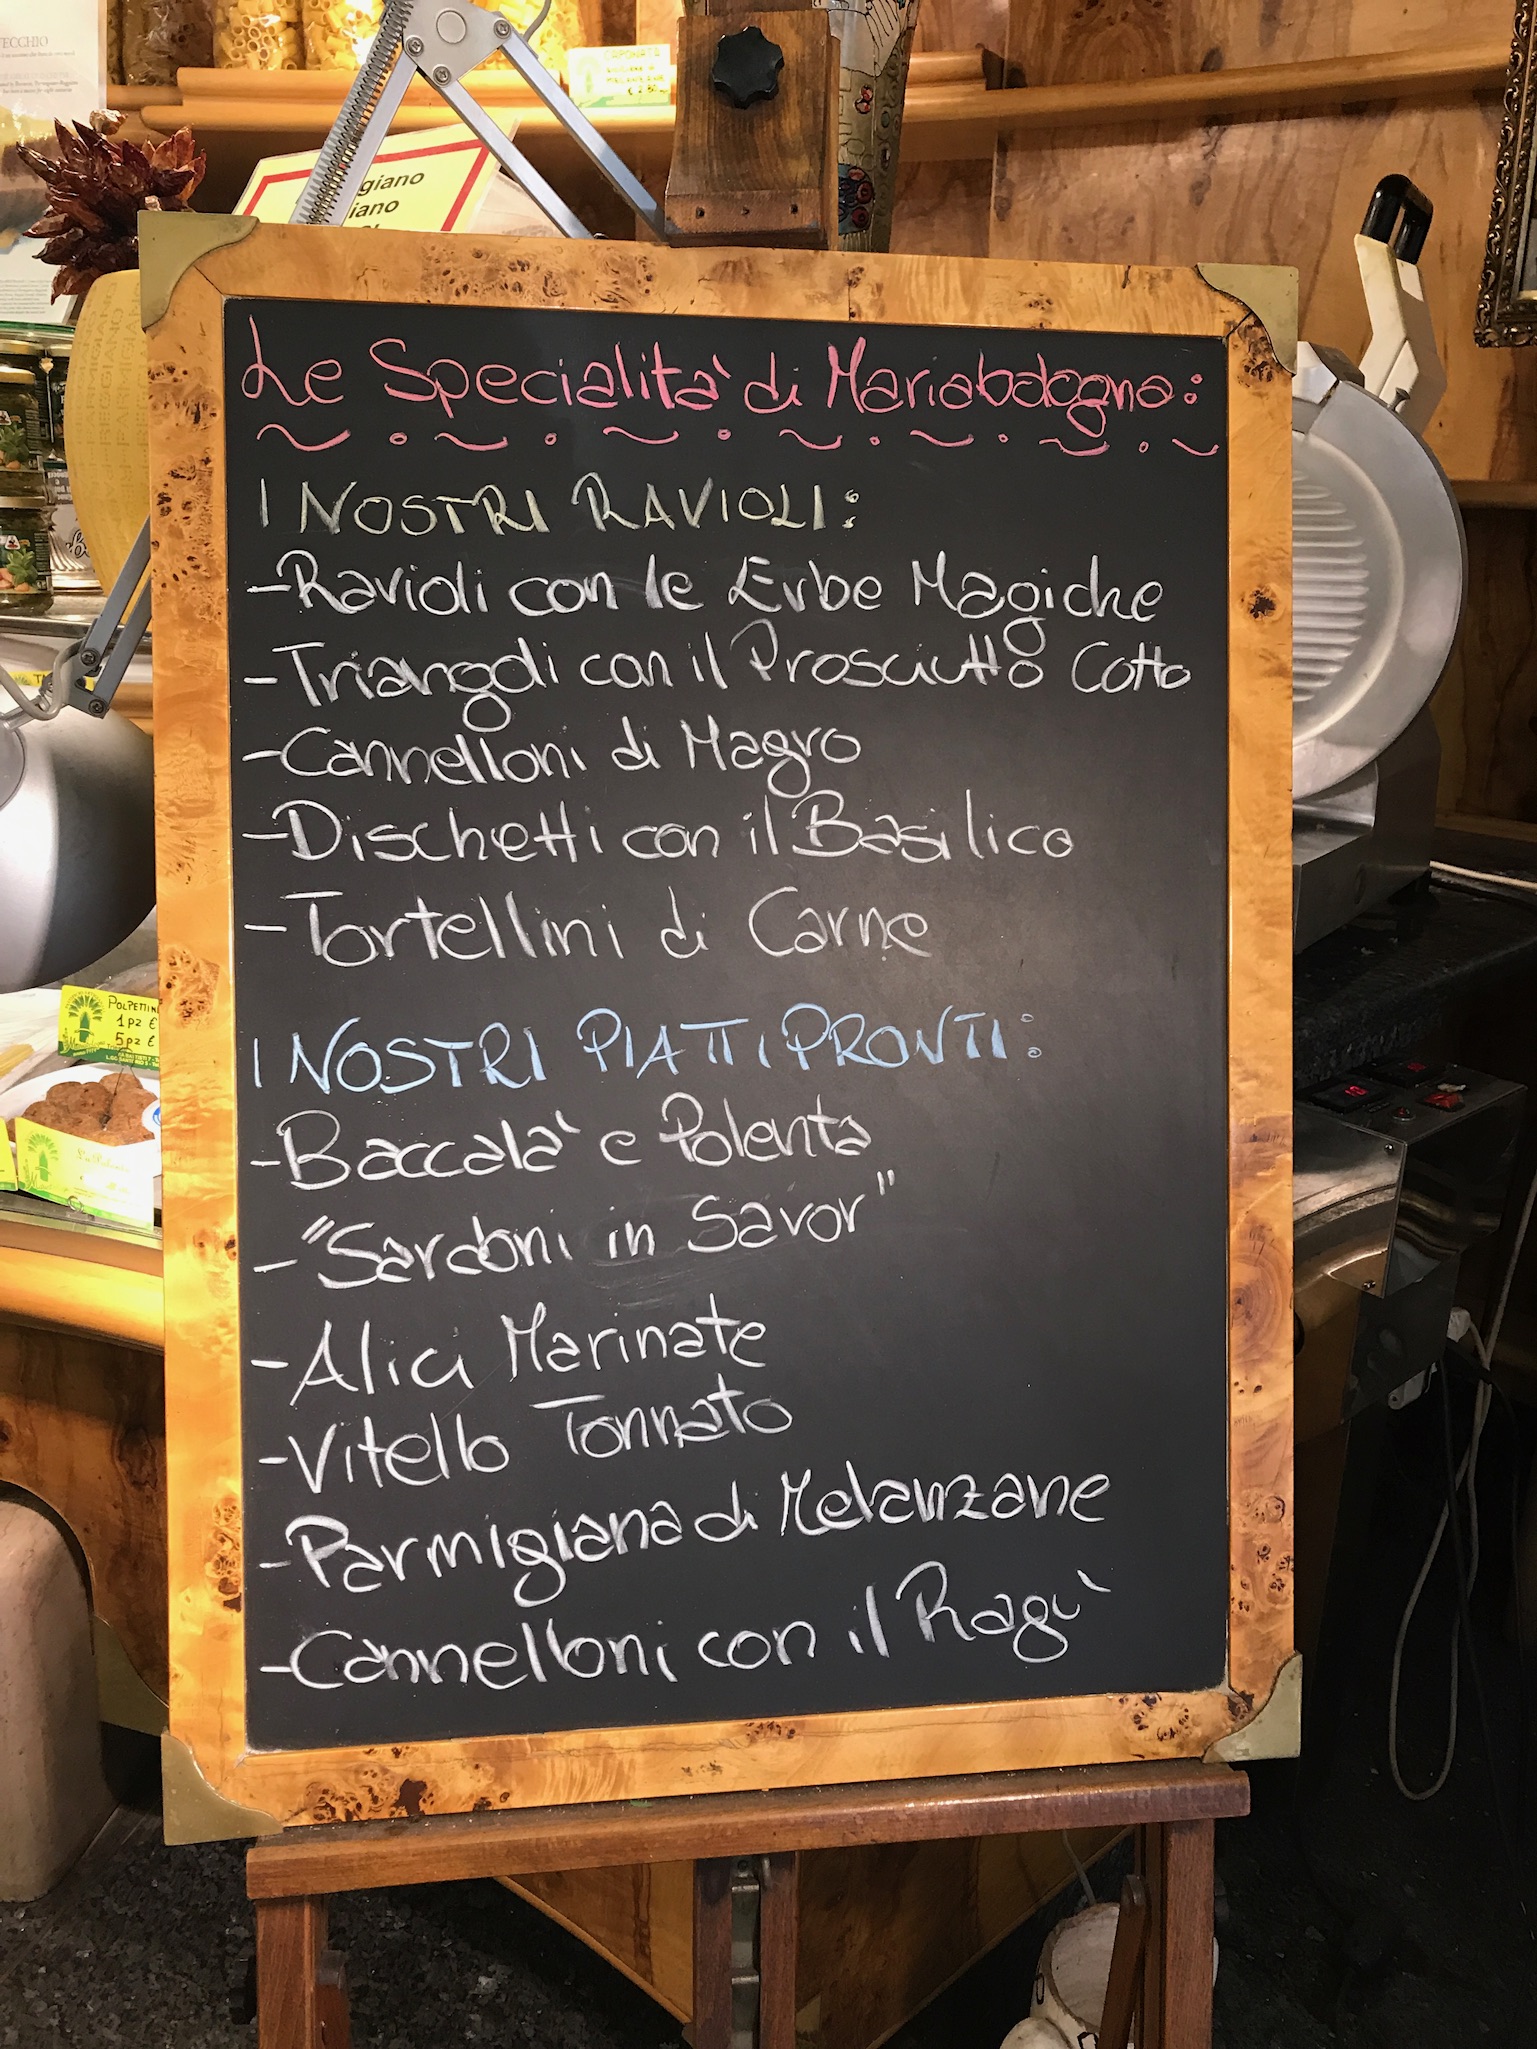 VECCHIO
CAPONATA
giano
iano
Le Specialità di Mariabologna:
I NOSTRI RAVIOLI:
-Ravioli con le Erbe Magiche
-Triangoli con il Prosciutto Cotto
-Cannelloni di Magro
-Dischetti con il Basilico
-Tortellini di Carne
I NOSTRI PIATTI PRONTI:
-Baccalà e Polenta
-"Sardoni in Savor"
-Alici Marinate
-Vitello Tonnato
-Parmigiana di Melanzane
-Cannelloni con il Ragù
1 pz €
5 pz €